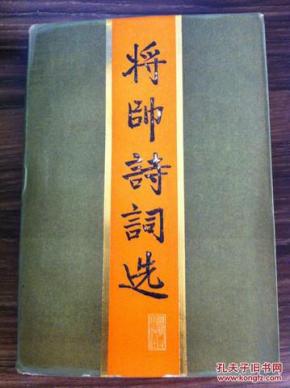 将帥詩詞选
孔夫子旧书网